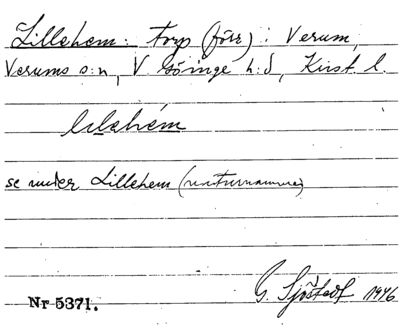 Lillehem: torp (förr) i Verum,
Verums s:n, V Göinge h:d, Krist. l.
lilehém
se under Lillehem (naturnamnen)
G. Sjöstedt 1946
Nr 5371.